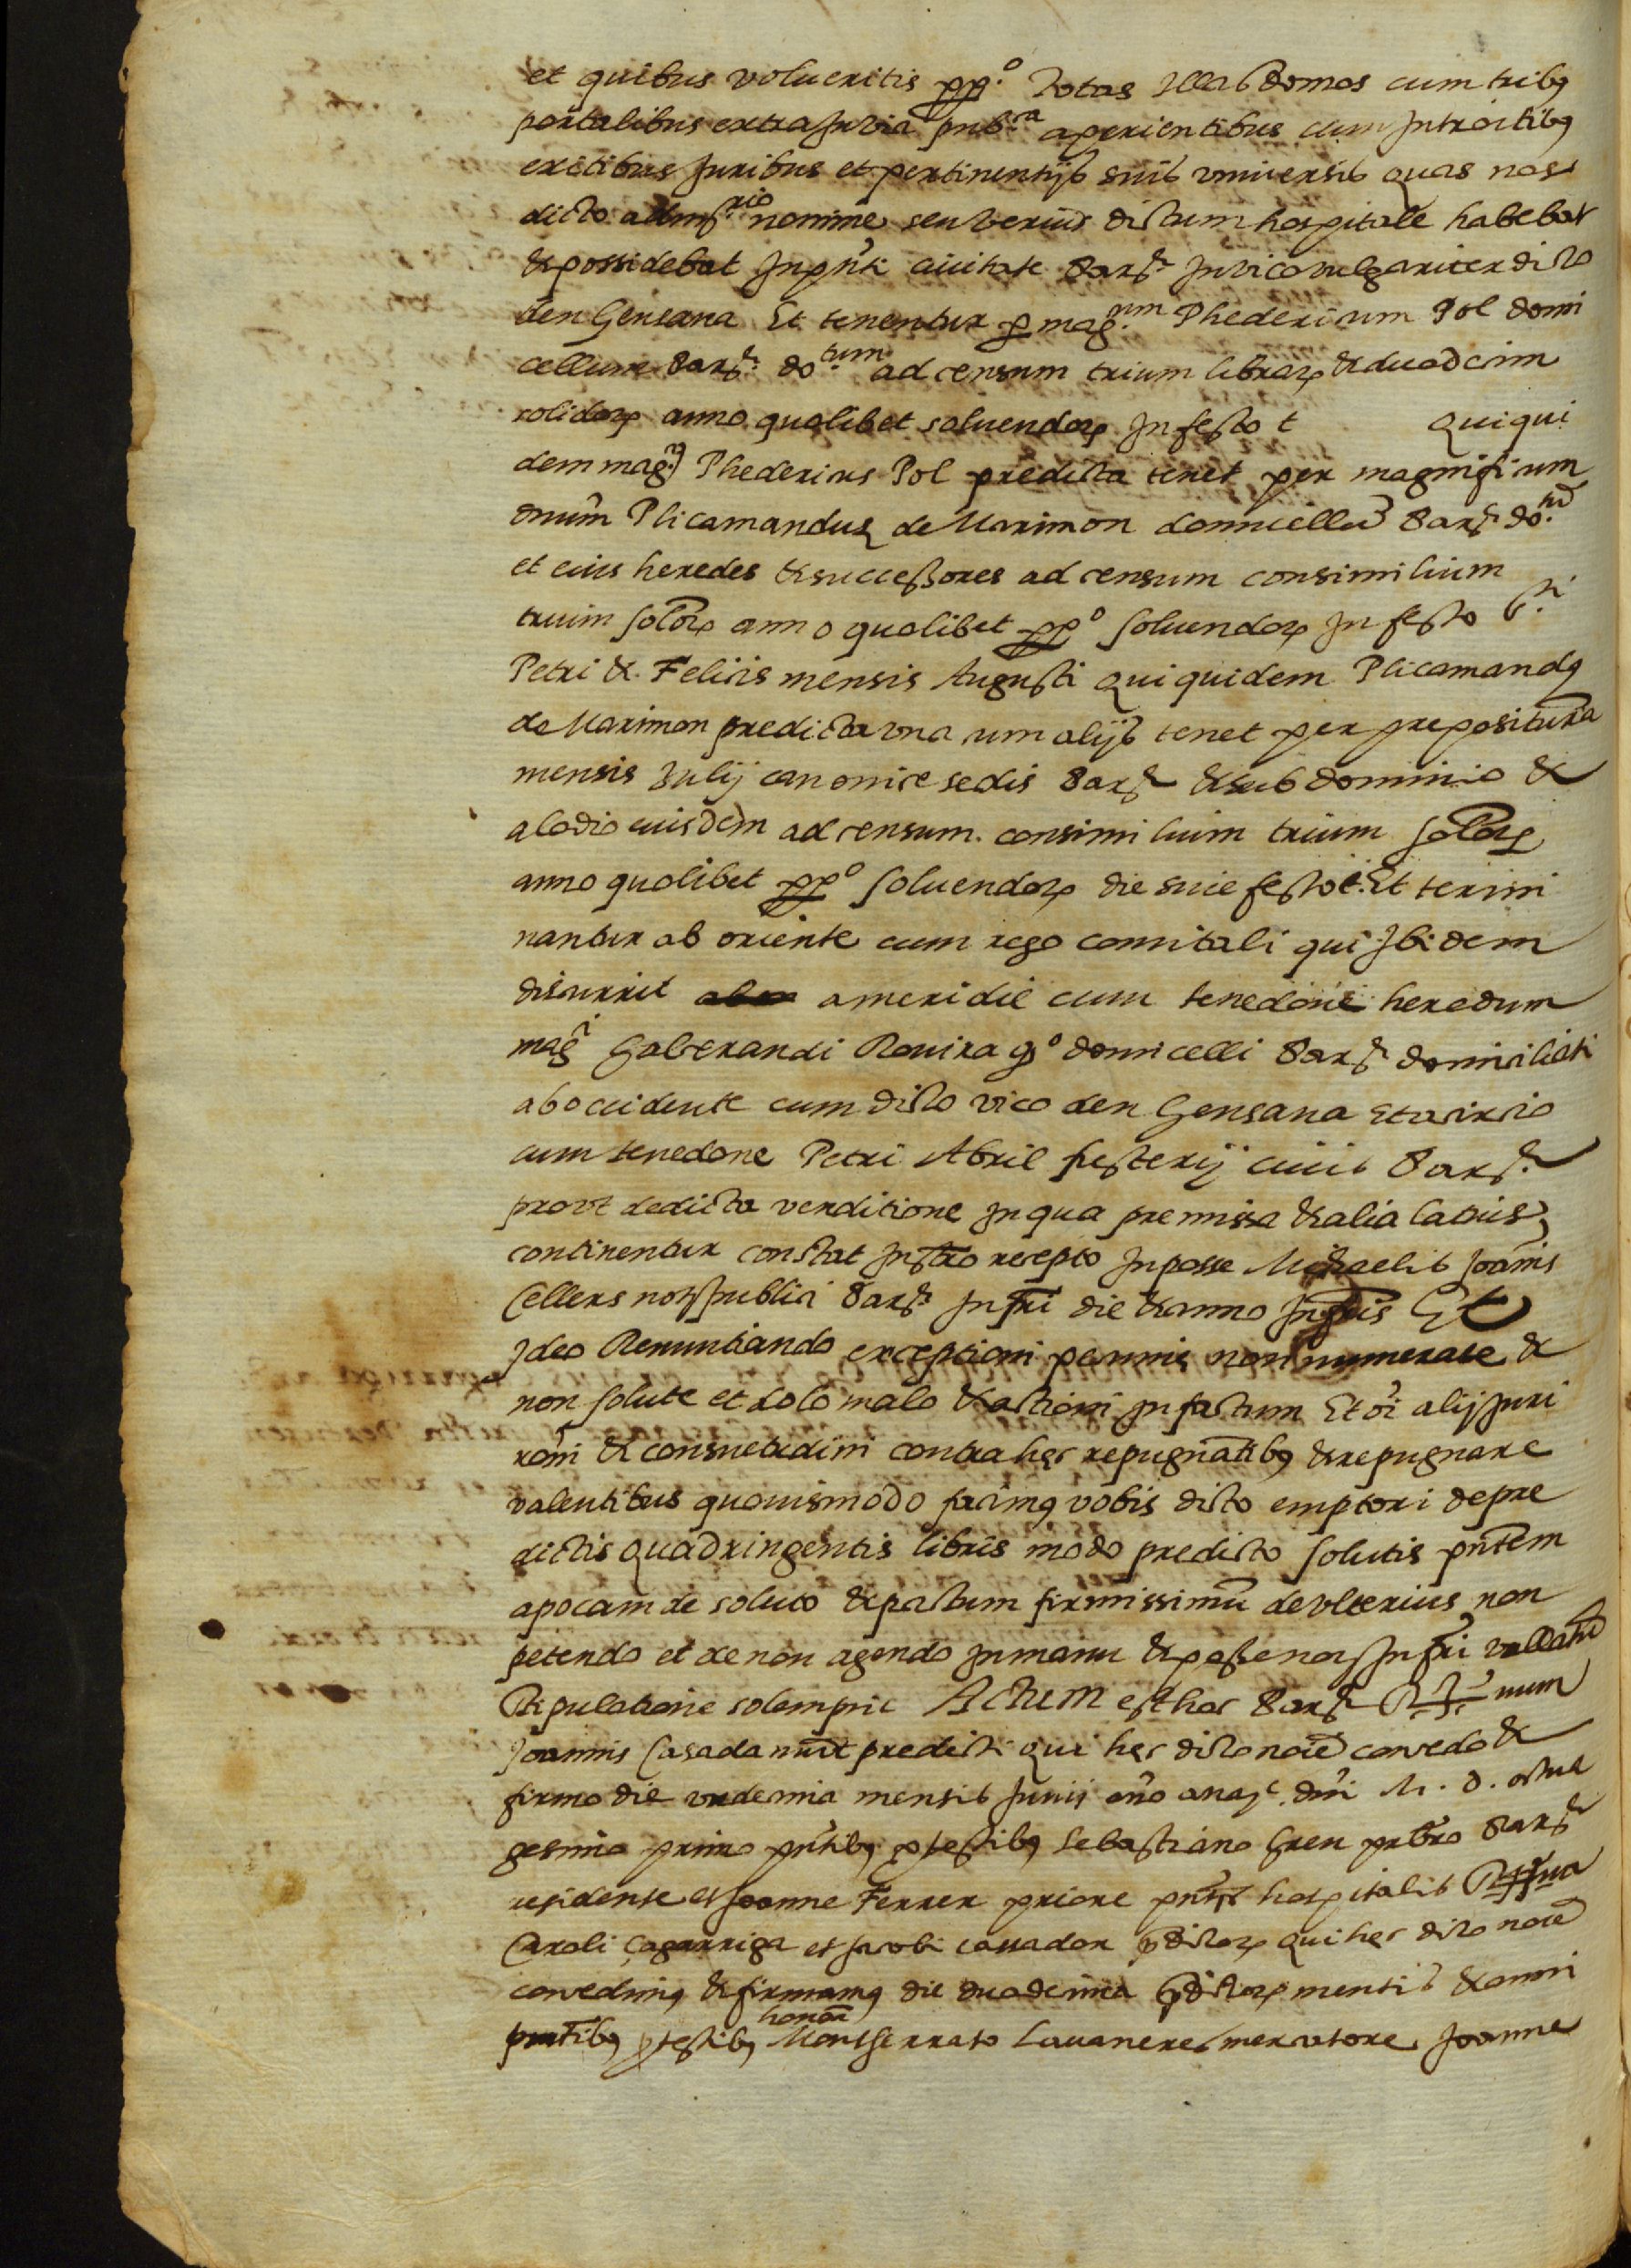 et quibus volueritis ppº totas Illas domos cum tribꝰ
portalibus extra In via pub.ca aperientibus cum Introitibꝰ
exitibus Juribus et pertinentijs suis vniuersis quas nos
dicto adm.rio nomine seu verius dictum hospitale habebat
& possidebat In pñti ciuitate Barꝭ In vico vulgariter dicto
den Gensana Et tenentur p mag.cum Phedericum Pol domi
cellum Barꝭ do.tum ad censum trium librarꝫ & duodecim
solidorꝫ anno quolibet soluendorꝫ In festo t quiqui
dem mag.cꝰ Phedericus Pol predicta tenet per magnificum
dnum̃ Plicamandus de Marimon domicellũ Barꝭ do.m
et eius heredes & successores ad censum consimilium
trium solorꝫ anno quolibet ppº soluendorꝫ In festo S.ti
Petri & Felicis mensis Augusti qui quidem Plicamandꝰ
de Marimon predicta vna cum alijs tenet per preposituram
mensis Julij canonice sedis Barꝭ & sub dominio &
alodio eiusdem ad censum consimilium trium solorꝫ
anno quolibet ppº soluendorꝫ die siue festo t. Et termi
nantur ab oriente cum rego comitali qui Ibidem
discurrit a meridie cum tenedone heredum
mag.ci Galcerandi Rouira qº domicelli Barꝭ domiciliati
ab occidente cum dicto vico den Gensana Et a circio
cum tenedone Petri Abril fusterij ciuis Barꝭ
prout de dicta venditione In qua premissa & alia latius
continentur constat Instro recepto In posse Michaelis Joannis
Cellers notꝭ publici Barꝭ Infrı̃ die & anno Infrı̃s Et
Ideo Renuntiando exceptioni pecunie non numerate &
non solute et dolo malo & actioni In factum Et oı̃ alij Juri
roñi & consuetudini contra hec repugnãtibꝰ & repugnare
valentibus quouismodo facimꝰ vobis dicto emptori de pre
dictis quadringentis libris modo predicto solutis pñtem
apocam de soluto & pactum firmissimũ de vlterius non
petendo et de non agendo In manu & posse notꝭ Infrı̃ vallatũ
stipulatione solempni Actum est hoc Barꝭ Sig num
Joannis Casadamũt predicti qui hec dicto noı̃e concedo &
firmo die vndecima mensis Junij año a natꝭ dñi M. D. octua
gesimo primo pñtibꝰ p testibꝰ Sebastiano Greu pr̃bro Barꝭ
residente et Joanne Ferrer priore pñtis hospitalis Sig na
Caroli Çagarriga et Jacobi cassador pdictorꝫ qui hec dicto noı̃e
concedimꝰ & firmamꝰ die duodecima pdictorꝫ mensis & anni
pñtibꝰ p testibꝰ honor̃ Montserrato Lauaneres mercatore Joanne